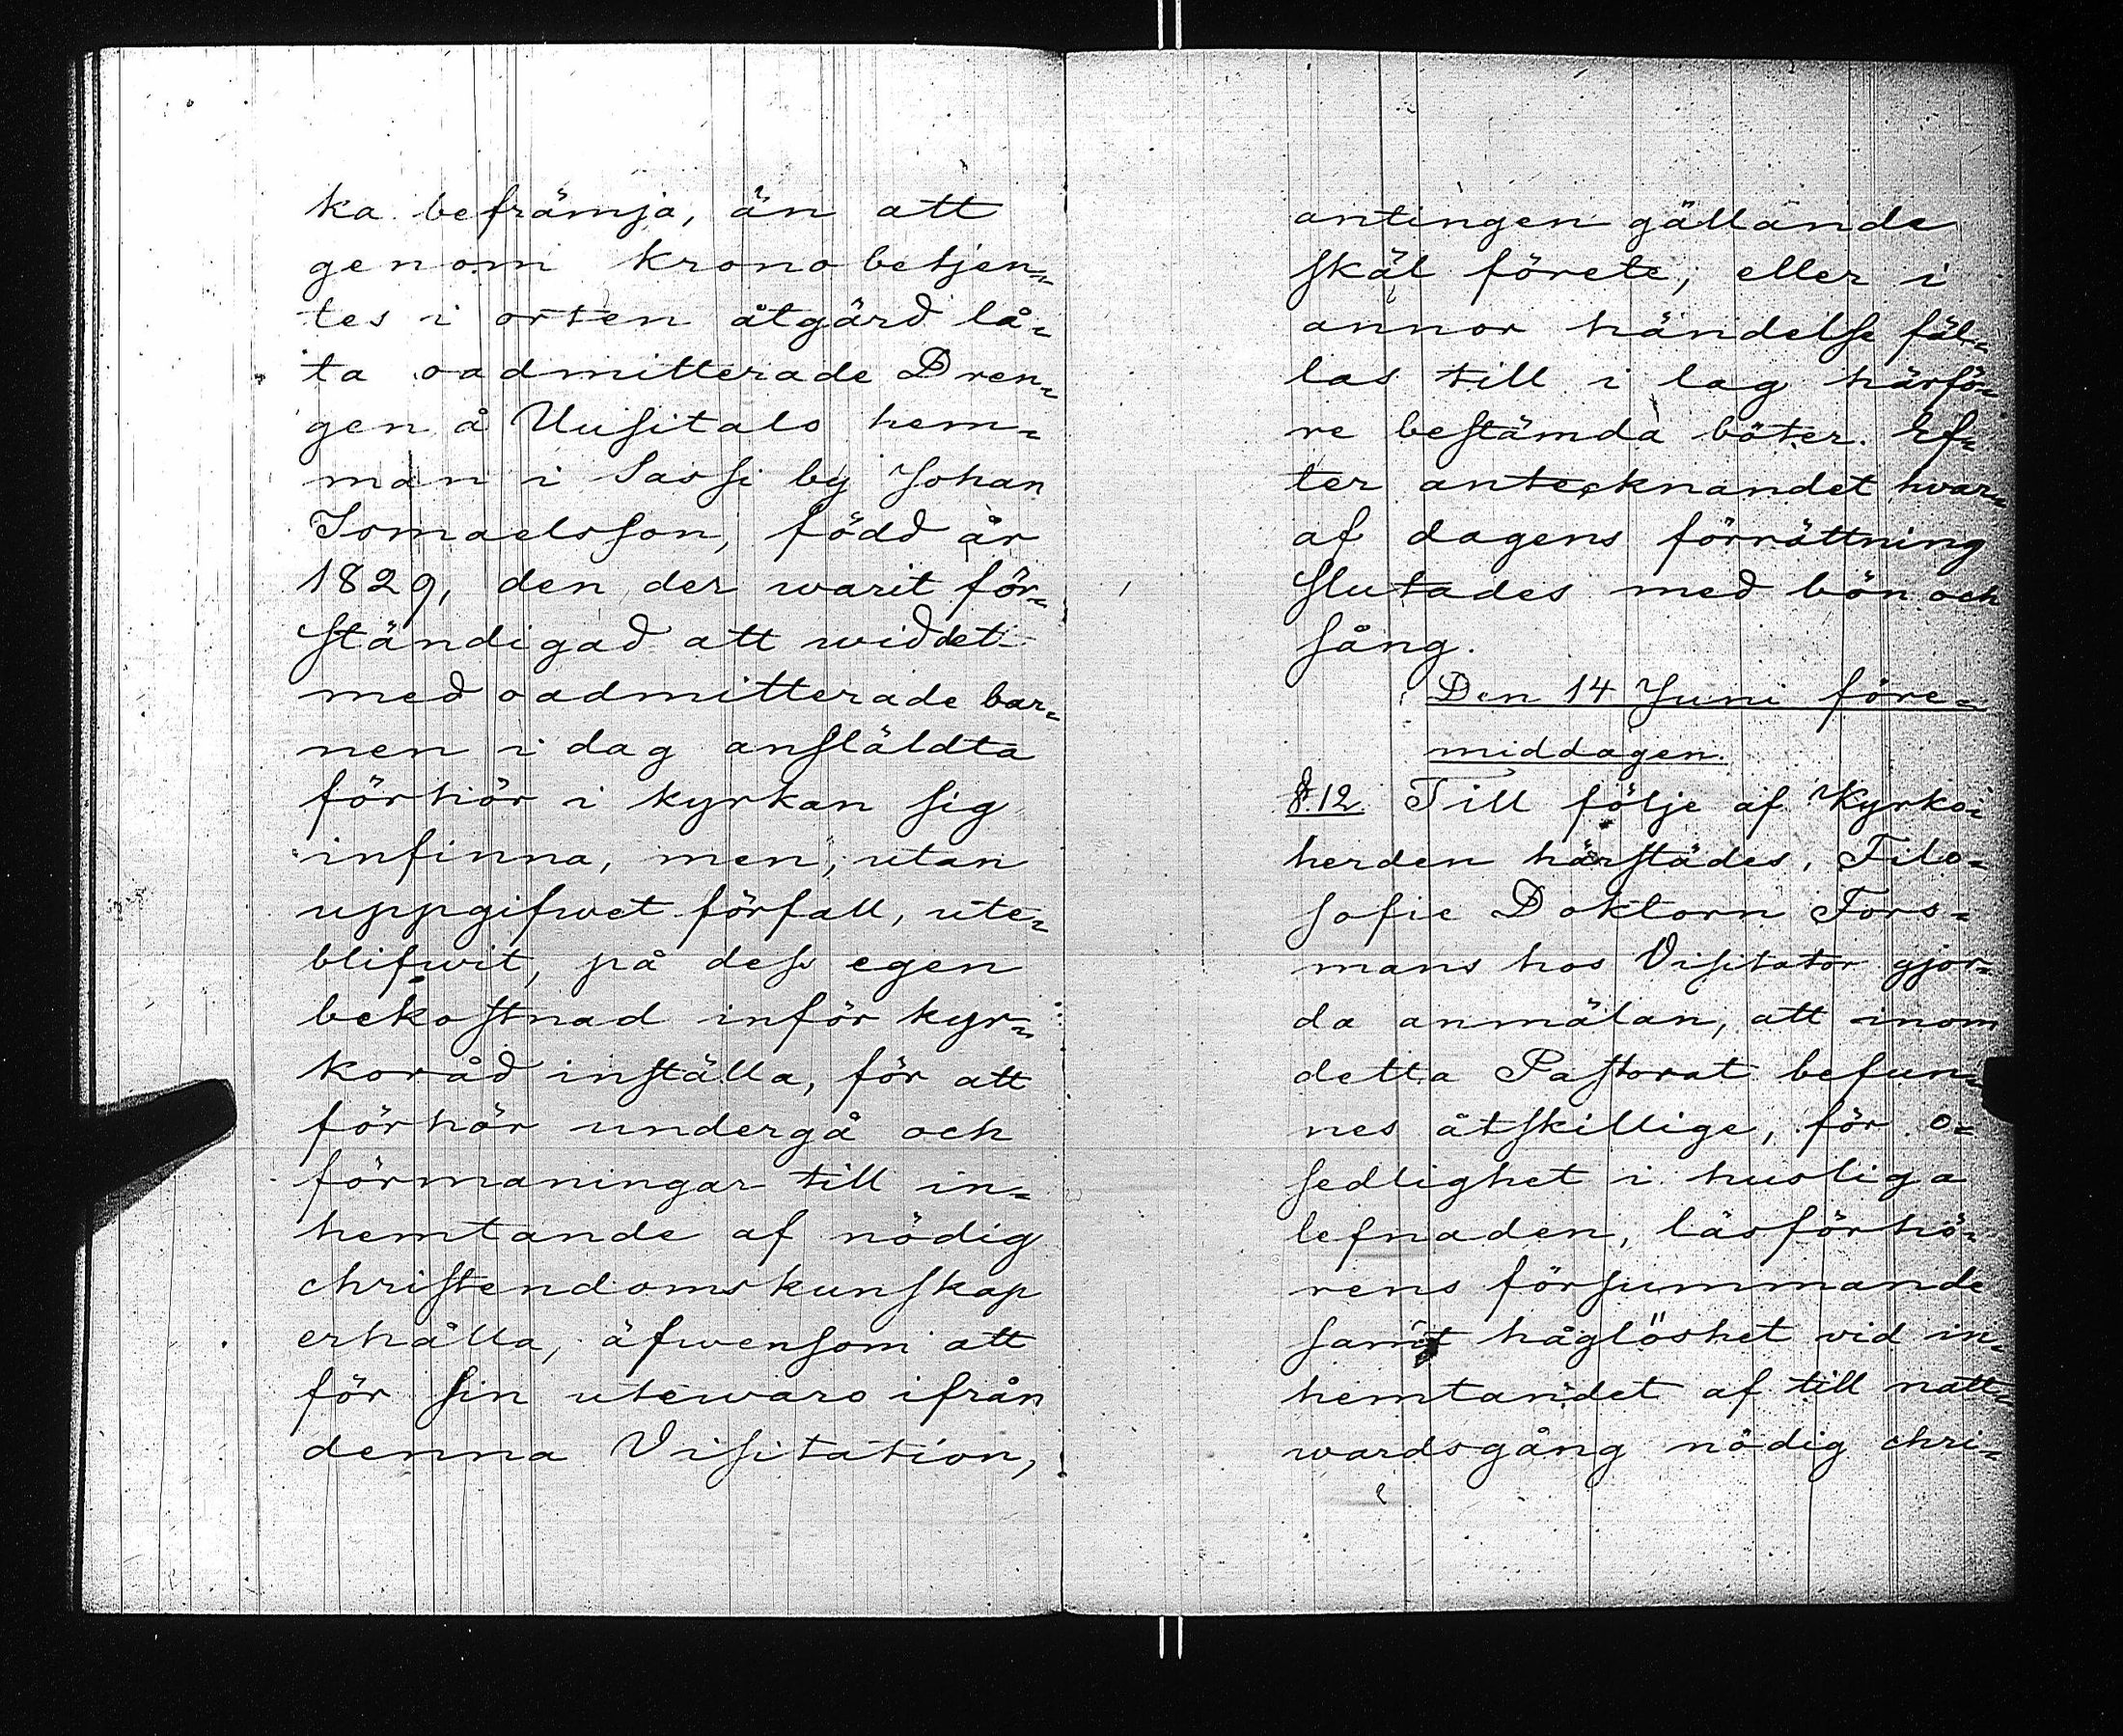 ka befrämja, än att
genom kronobetjen=
tes i orten åtgärd lå=
ta oadmitterade Dren=
gen å Uusitalo hem=
man i Sassi by Johan
Ismaelsson, född år
1829, den der warit för=
ständigad att wid det
med oadmitterade bar=
nen i dag anstäldta
förhör i kyrkan sig
infinna, men, utan
uppgifwet förfall, ute=
blifwit, på dess egen
bekostnad inför kyr=
koråd inställa, för att
förhör undergå och
förmaningar till in=
hemtande af nödig
christendomskunskap
erhålla, äfwensom att
för sin utewaro ifrån
denna Visitation,
antingen gällande
skäl förete, eller i
annor händelse fäl=
las till i lag härfö=
re bestämda böter. Ef=
ter antecknandet hwar=
af dagens förrättning
slutades med bön och
sång.
Den 14 Juni före=
middagen.
§.12. Till följe af Kyrko=
herden härstädes, Filo=
sofie Doktorn Fors=
mans hos Visitator gjor=
da anmälan, att inom
detta Pastorat befun=
nes åtskillige, för o=
sedlighet i husliga
lefnaden, läsförhö=
rens försummande
samt håglöshet vid in=
hemtandet af till natt=
wardsgång nödig chri=